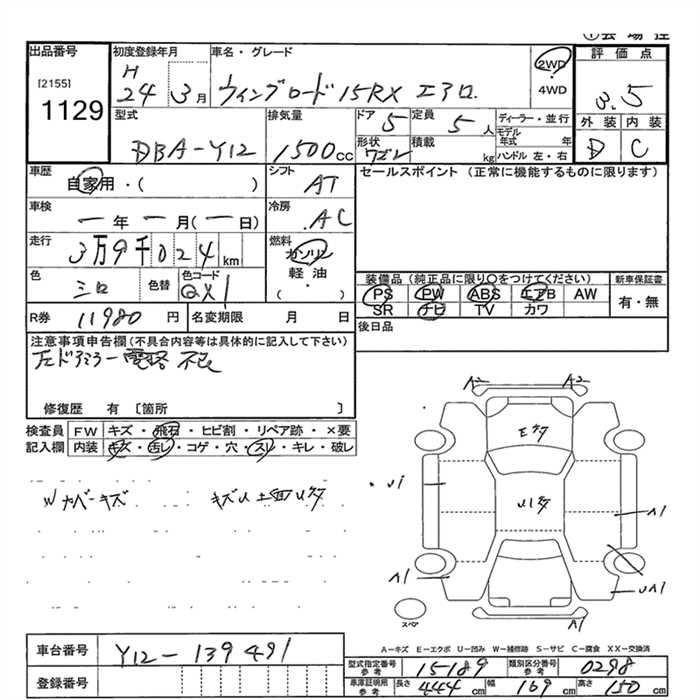 出品番号
[2155]
1129
初度登録年月
H
24 3月
車名・グレード
ウィングロード 15RX エアロ
2WD
・
4WD
評価点
3.5
外装 内装
D C
型式
DBA-Y12
排気量
1500cc
ドア
5
定員
5人
ディーラー・並行
モデル年式 年
ハンドル 左・右
形状
ワゴン
積載
kg
車歴
自家用・( )
シフト
AT
セールスポイント（正常に機能するものに限ります）
車検
ー年ー月(ー日)
冷房
AC
走行
3万9千024km
燃料
ガソリン
軽油
( ・ )
色
シロ
色替
色コード
QX1
装備品（純正品に限り○をつけてください）
新車保証書
PS PW ABS エアB AW
SR ナビ TV カワ
有・無
R券
11980円
名変期限 月 日
後日品
注意事項申告欄(不具合内容等は具体的に記入して下さい)
左ドアミラー電格不良
修復歴 有〔箇所 〕
検査員
記入欄
FW キズ・飛石・ヒビ割・リペア跡・×要
内装 キズ・汚レ・コゲ・穴・スレ・キレ・破レ
Wナバーキズ
キズU 上面U多
A2 A2
E多
U1
U1多
A1
A1
UA1
スペア
A1
A-キズ E-エクボ U-凹み W-補修跡 S-サビ C-腐食 XX-交換済
車台番号
Y12-139491
登録番号
型式指定番号
参考
15189
類別区分番号
参考
0298
車庫証明用
参考
長さ 444cm 幅 169cm 高さ 150cm